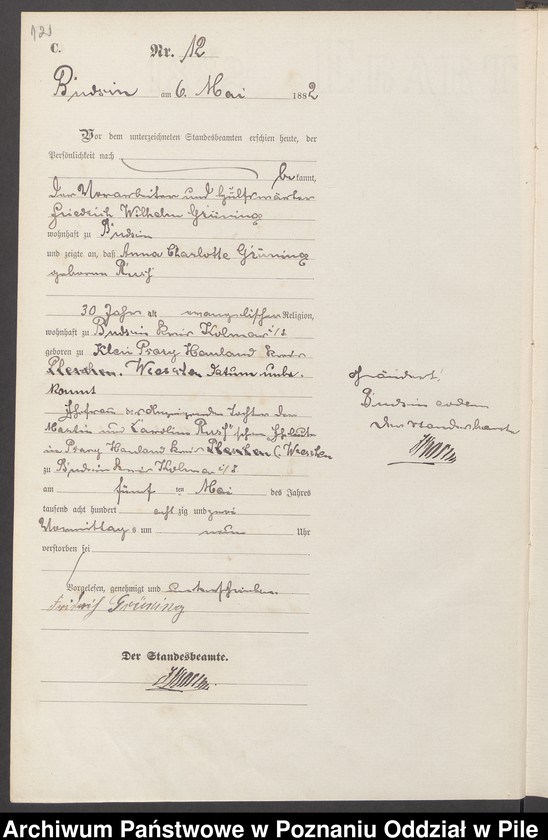 121
C.
Nr. 12
Budsin am 6. Mai 1882
Vor dem unterzeichneten Standesbeamten erschien heute, der
Persönlichkeit nach
bekannt,
der Vorarbeiter und Hülfswärter
Friedrich Wilhelm Grüning
wohnhaft zu Budsin
und zeigte an, daß Anna Charlotte Grüning
geborene Rusch
30 Jahre alt evangelischer Religion,
wohnhaft zu Budsin Kreis Kolmar i/P
geboren zu Klein Hauland Kreis
Pleschen. Datum unbe-
kannt
Ehefrau des Anzeigenden Tochter der
Martin und Caroline Rusch'schen Eheleute
in Hauland Kreis Pleschen
zu Budsin Kreis Kolmar i/P
am fünf ten Mai des Jahres
tausend acht hundert acht zig und zwei
Vormittags um neun Uhr
verstorben sei
Vorgelesen, genehmigt und unterschrieben.
Fridrich Grüning
Der Standesbeamte.
Geändert!
Budsin eodem
Der Standesbeamte
Archiwum Państwowe w Poznaniu Oddział w Pile